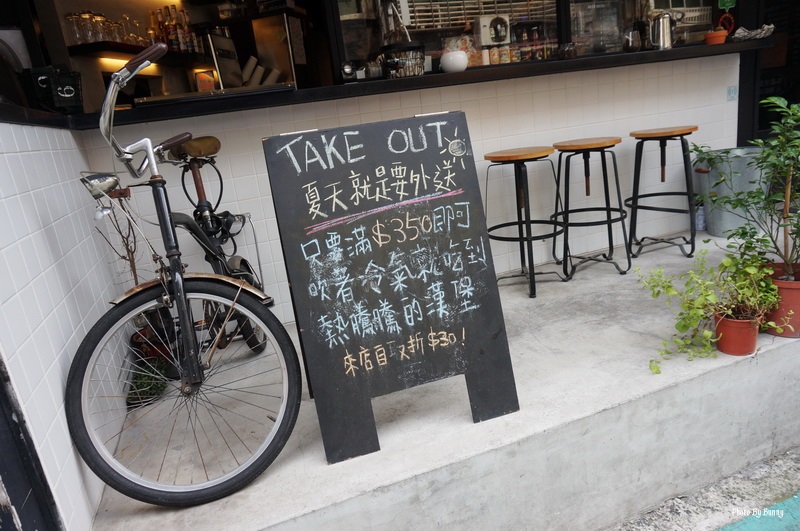 TAKE OUT
夏天就是要外送
只要滿$350即可
吹著冷氣就吃到
熱騰騰的漢堡
來店自 又折$30!
Photo By Bunny